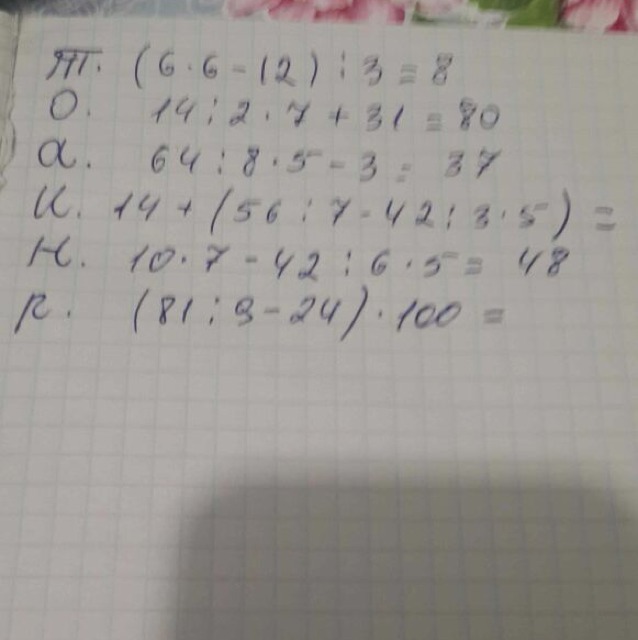 Т. (6·6-12):3=8
О. 14:2·7+31=80
а. 64:8·5-3=37
И. 14+(56:7-42:3·5)=
Н. 10·7-42:6·5=48
р. (81:9-24)·100=